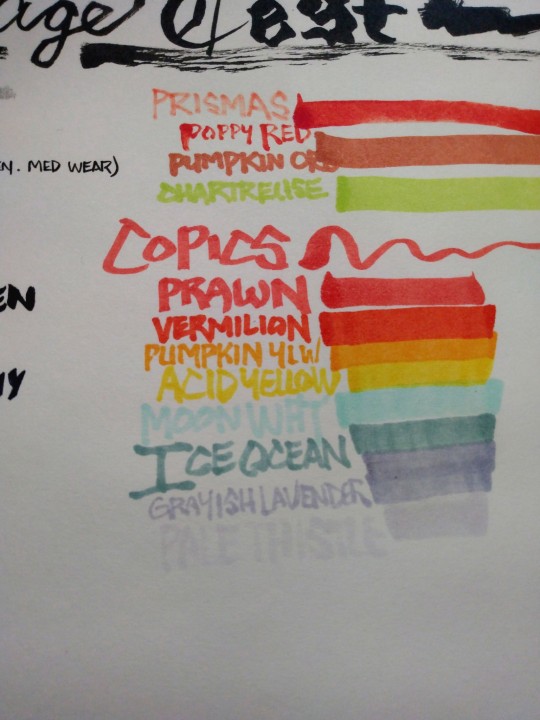 age Test
PRISMAS
POPPY RED
EN. MED WEAR)
PUMPKIN ORG
CHARTREUSE
COPICS
PRAWN
EN
VERMILION
PUMPKIN YLW
ACID YELLOW
MOON WHT
ICE OCEAN
GRAYISH LAVENDER
PALE THISTLE